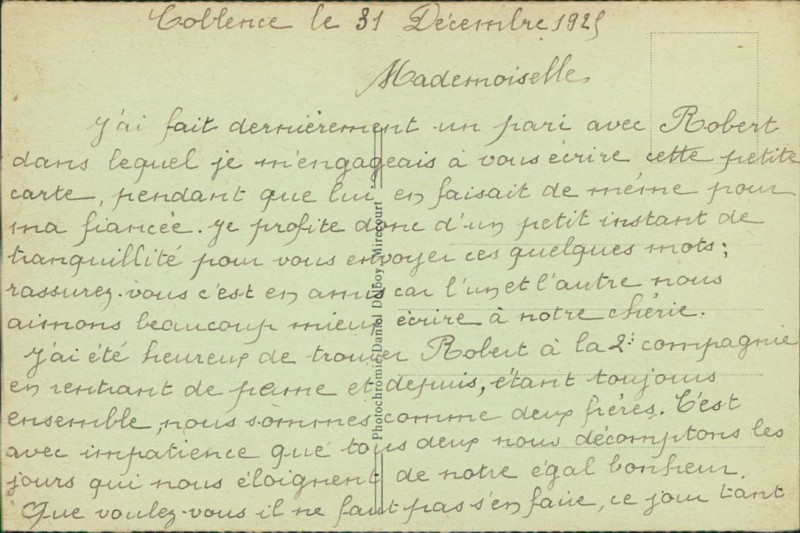 Coblence le 31 Décembre 1925
Mademoiselle,
J'ai fait dernièrement un pari avec Robert
dans lequel je m'engageais à vous écrire cette petite
carte, pendant que lui en faisait de même pour
ma fiancée. Je profite donc d'un petit instant de
tranquillité pour vous envoyer ces quelques mots;
rassurez-vous c'est en amis car l'un et l'autre nous
aimons beaucoup mieux écrire à notre chérie.
J'ai été heureux de trouver Robert à la 2e compagnie
en rentrant de perme et depuis, étant toujours
ensemble, nous sommes comme deux frères. C'est
avec impatience que tous deux nous décomptons les
jours qui nous éloignent de notre égal bonheur.
Que voulez-vous il ne faut pas s'en faire, ce jour tant
Photochromie Daniel Delboy, Mirecourt